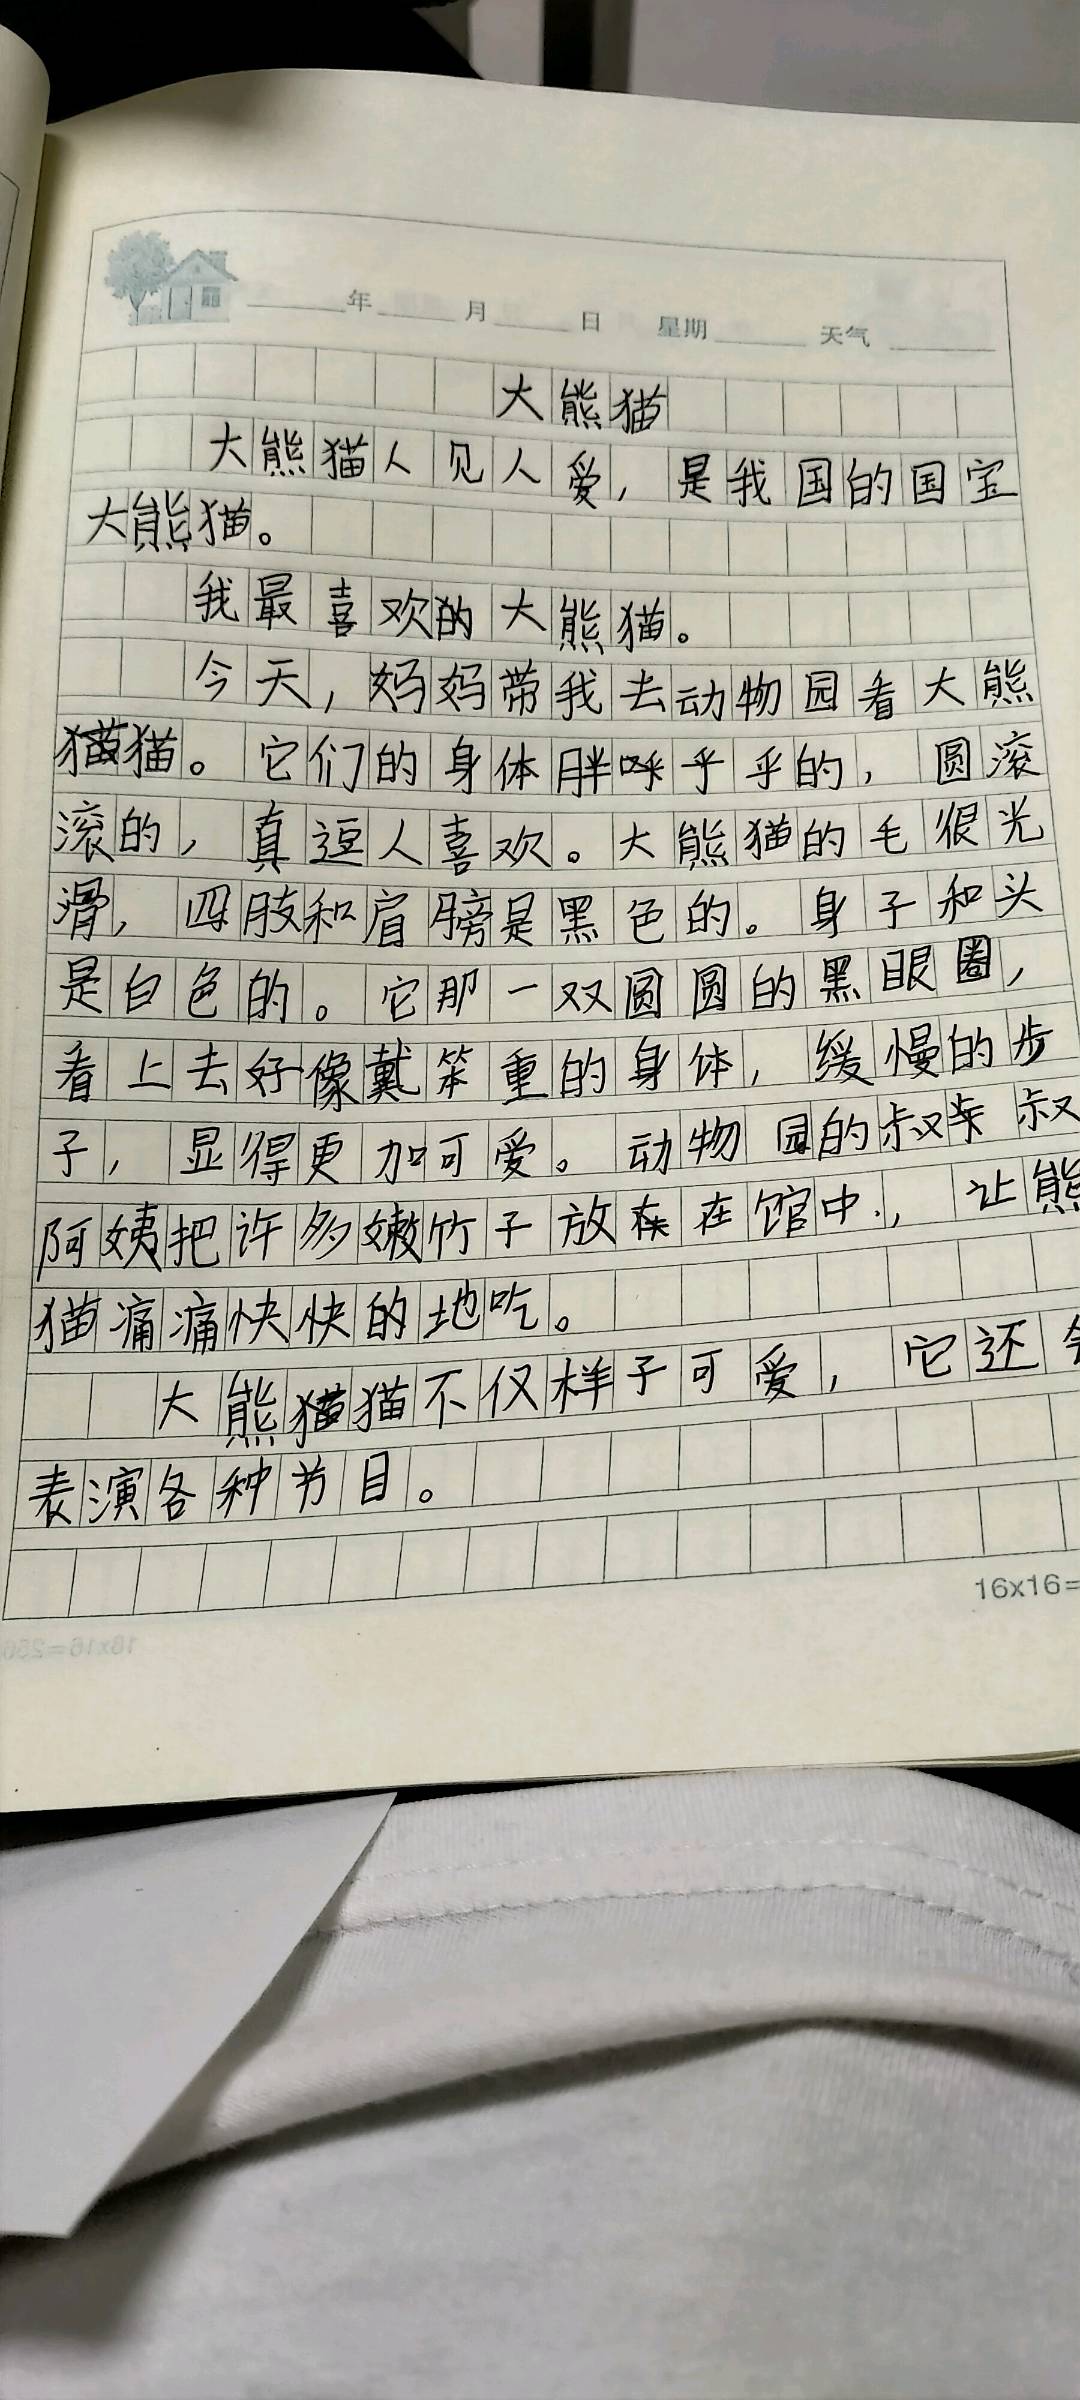 年 月 日 星期 天气
大熊猫
大熊猫人见人爱，是我国的国宝
大熊猫。
我最喜欢的大熊猫。
今天，妈妈带我去动物园看大熊
猫。它们的身体胖乎乎的，圆滚
滚的，真逗人喜欢。大熊猫的毛很光
滑，四肢和肩膀是黑色的。身子和头
是白色的。它那一双圆圆的黑眼圈，
看上去好像戴笨重的身体，缓慢的步
子，显得更加可爱。动物园的叔叔
阿姨把许多嫩竹子放在馆中，让熊
猫痛痛快快的地吃。
大熊猫不仅样子可爱，它还
表演各种节目。
16x16=